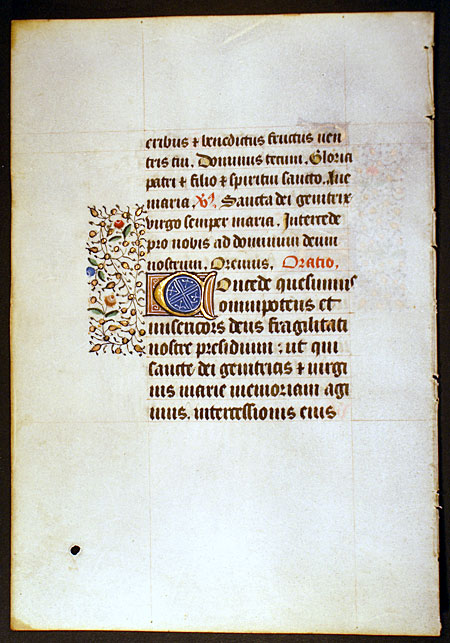 eribus ⁊ benedictus fructus ven
tris tui. Dominus tecum. Gloria
patri ⁊ filio ⁊ spiritui sancto. Aue
maria. V. Sancta dei genitrix
virgo semper maria. Intercede
pro nobis ad dominum deum
nostrum. Oremus. Oratio.
Concede quesumus
omnipotens et
misericors deus fragilitati
nostre presidium : ut qui
sancte dei genitricis ⁊ uirgi
nis marie memoriam agi
mus. intercessionis eius